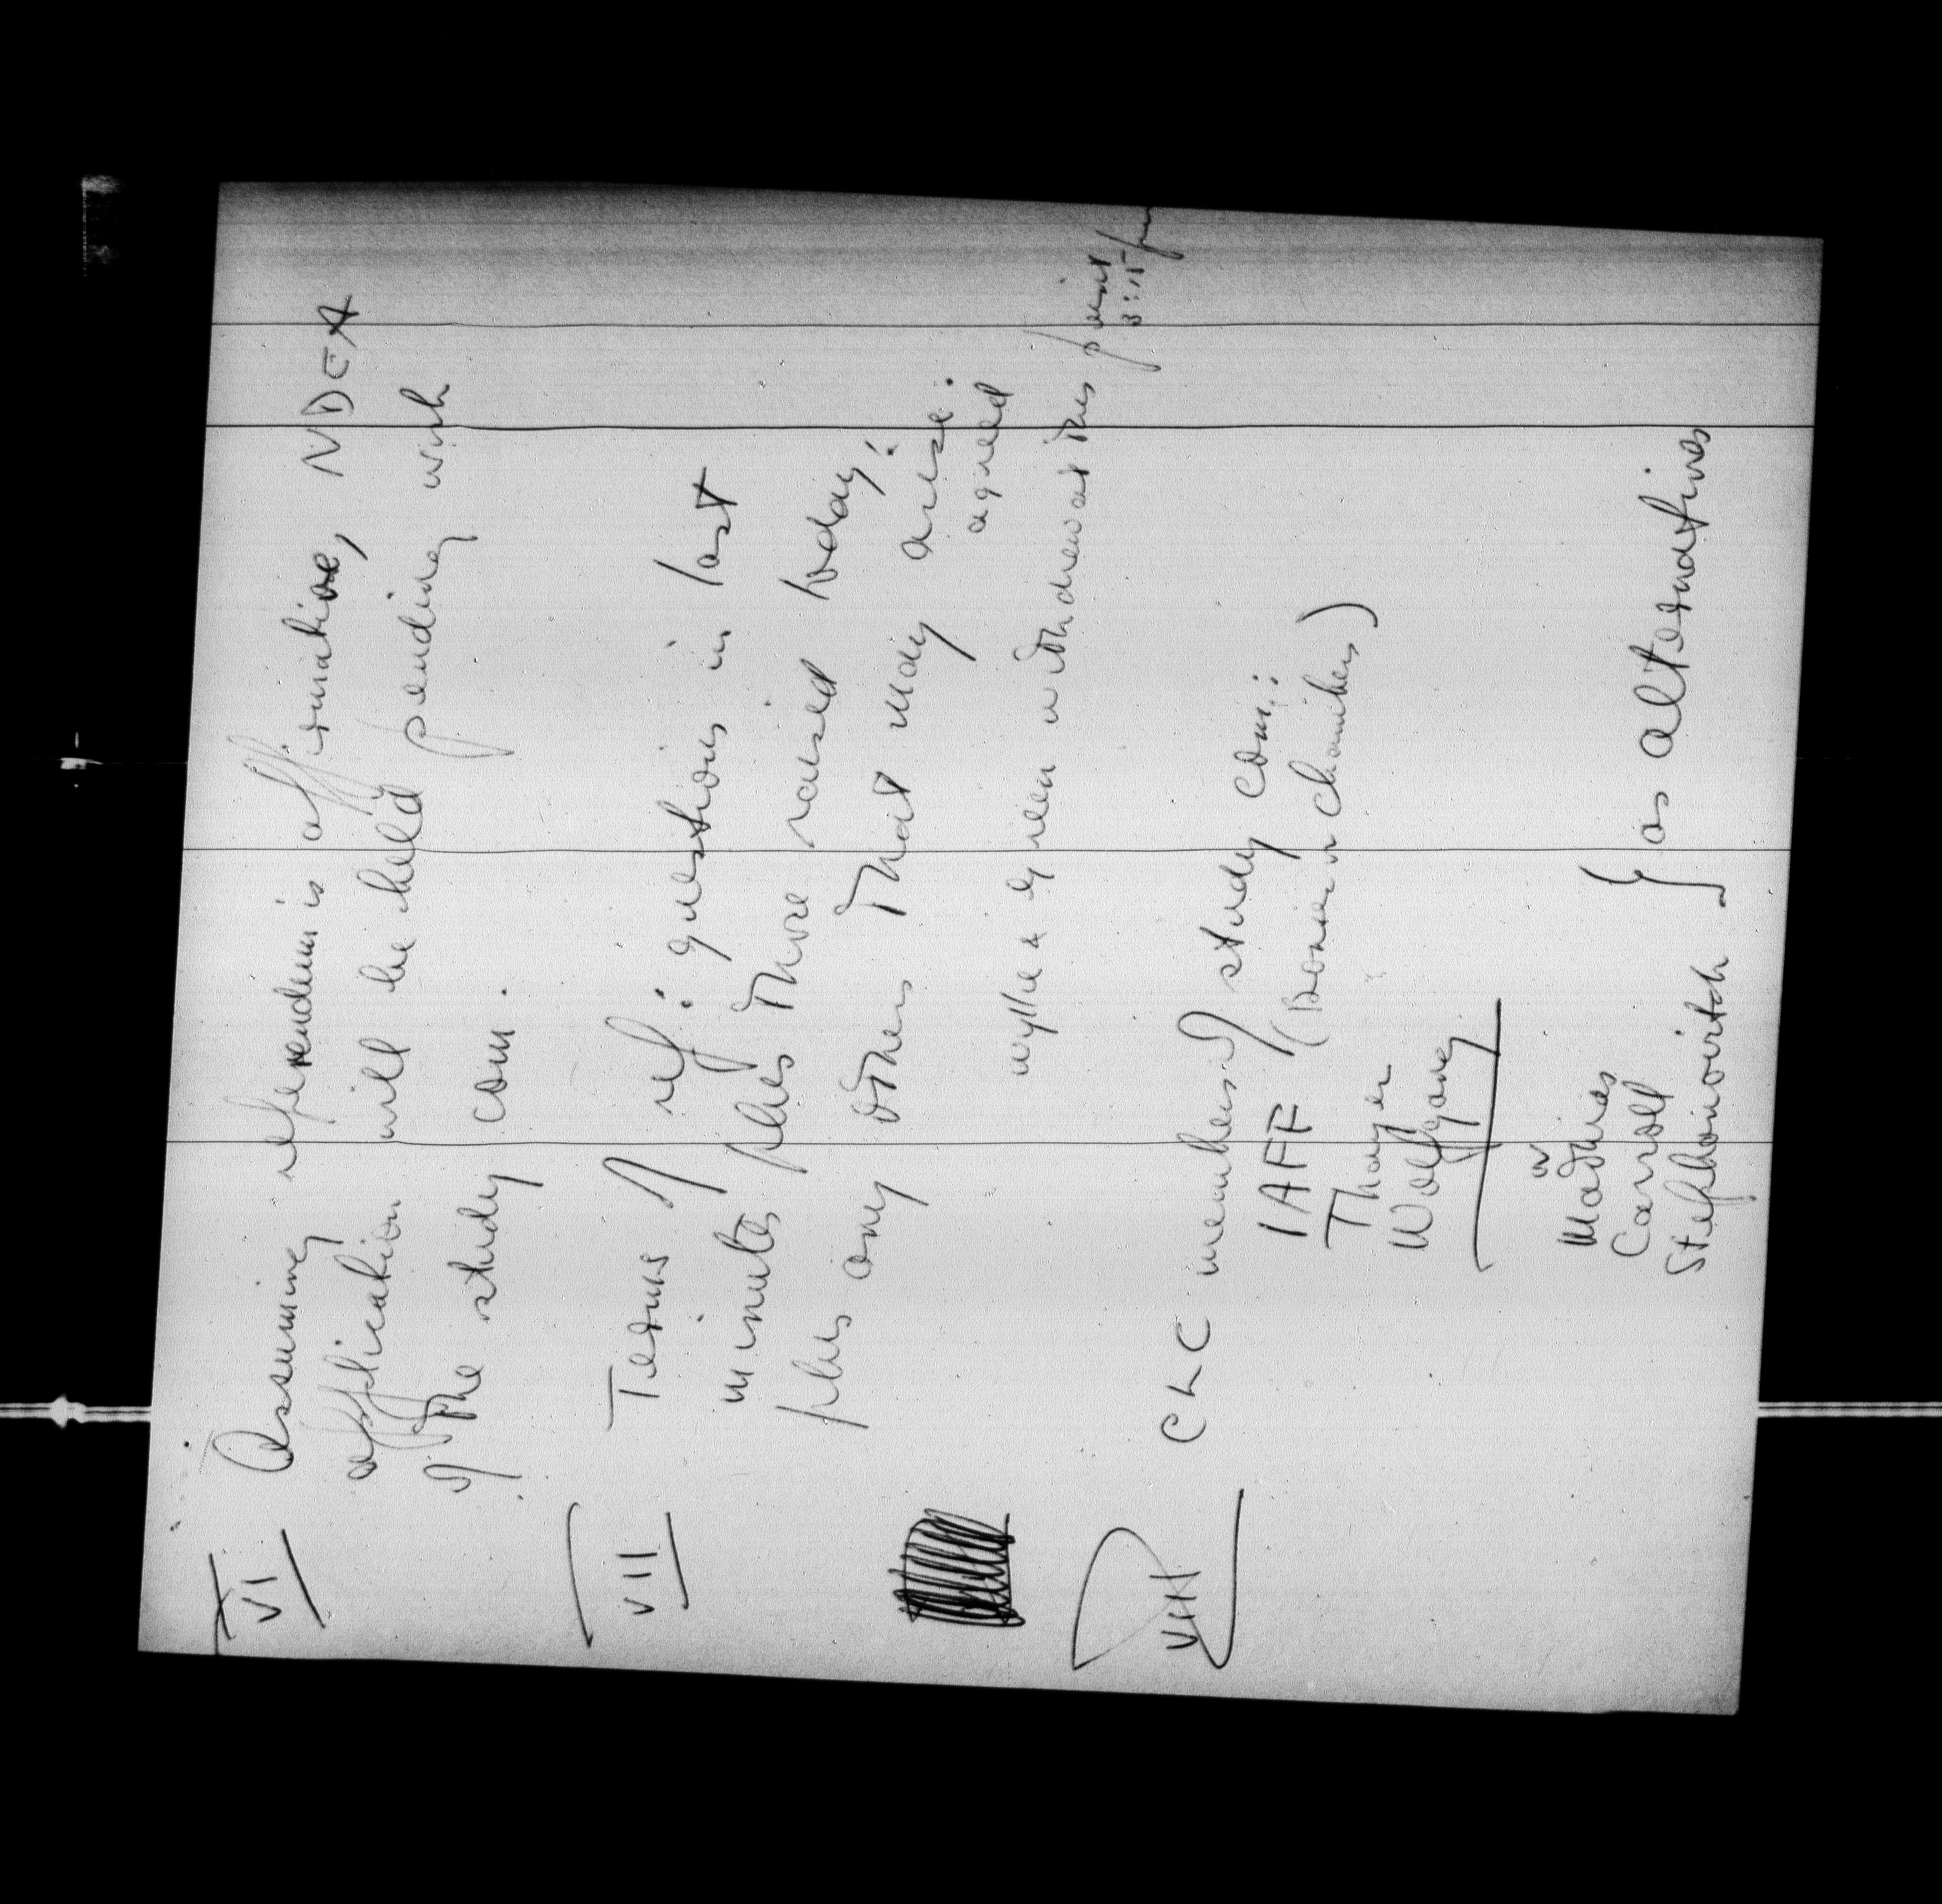 VI Assuming referendum is affirmative, NDEA
application will be held pending wish
of the study com.
VII Terms of ref: questions in last
minutes plus those raised today;
plus any others that may arise.
agreed
Wyllie & Green withdrew at this point
3:15 pm
VIII CLC members of study com:
IAFF (Bosier or Chambers)
Thayer
Wolfgang
or
Mathias
Carroll
Stephanovitch } as alternatives